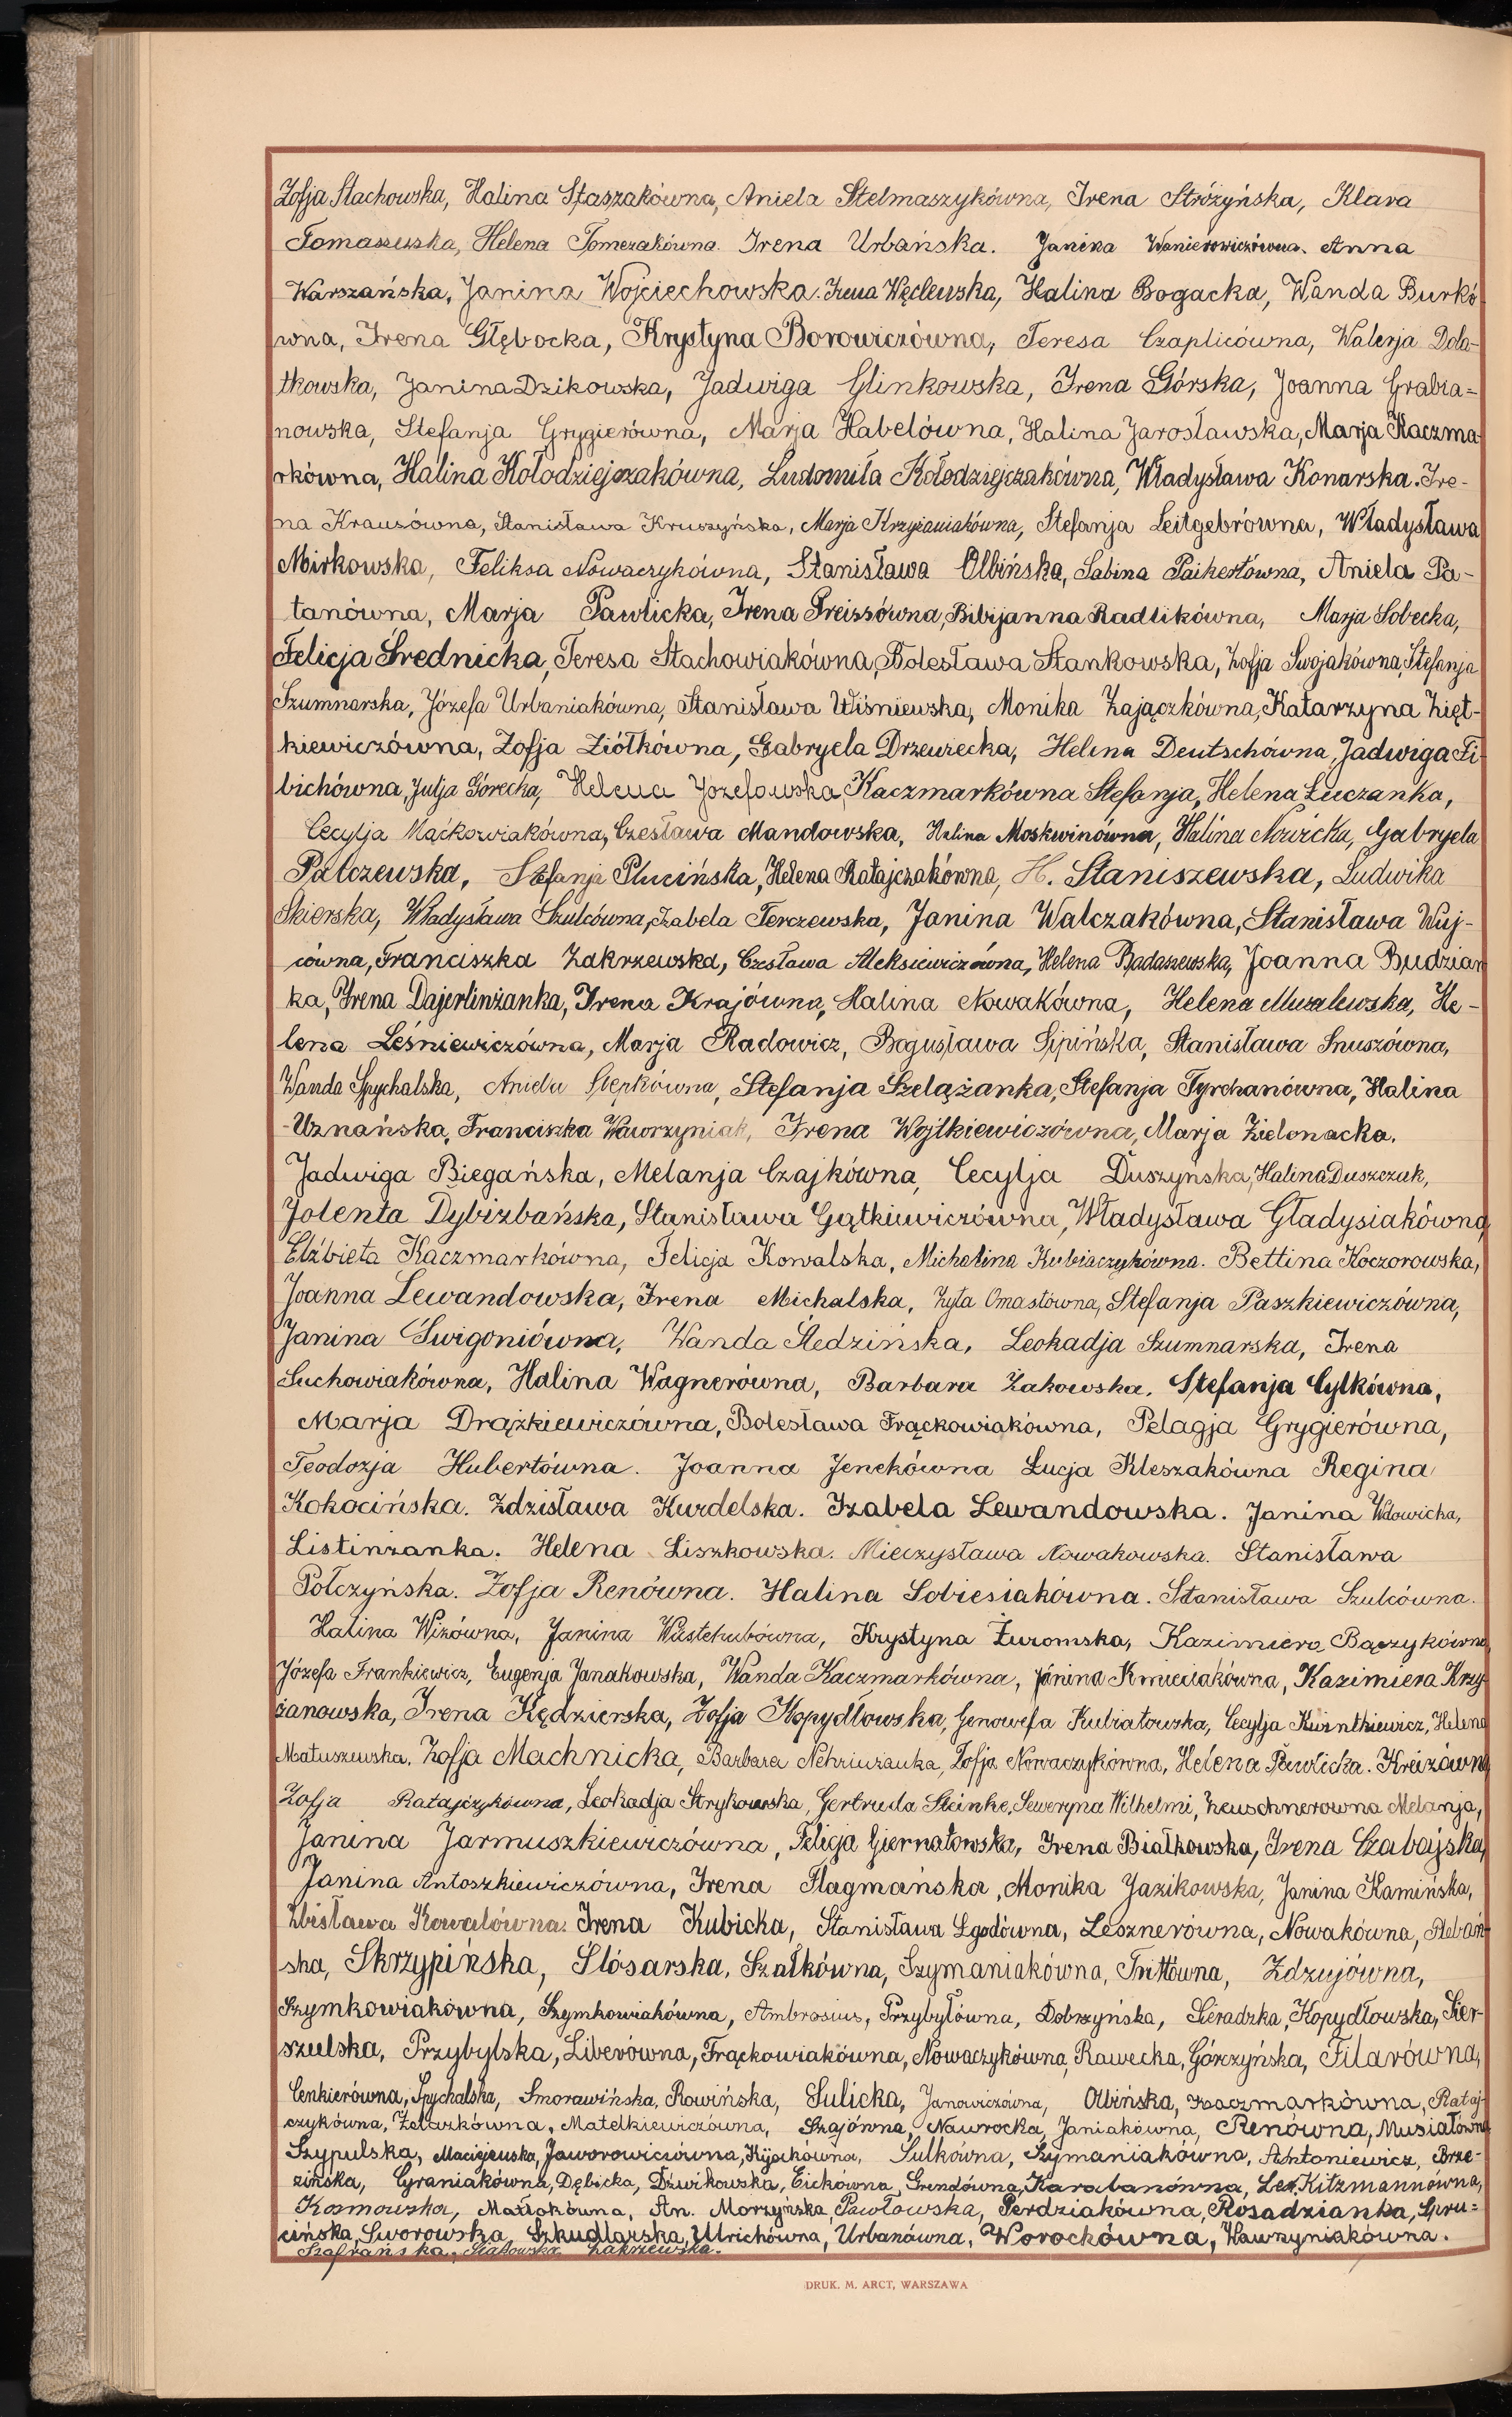 Zofja Stachowska, Halina Staszakówna, Aniela Stelmaszykówna, Irena Stróżyńska, Klara
Tomaszewska, Helena Tomczakówna. Irena Urbańska. Janina Wanierowiczówna. Anna
Warszańska, Janina Wojciechowska. Irena Węclewska, Halina Bogacka, Wanda Burkó
wna, Irena Głębocka, Krystyna Borowiczówna, Teresa Czaplicówna, Walerja Dola-
tkowska, Janina Dzikowska, Jadwiga Glinkowska, Irena Górska, Joanna Grabia=
nowska, Stefanja Grygierówna, Marja Habelówna, Halina Jarosławska, Marja Kaczma
rkówna, Halina Kołodziejczakówna, Ludomiła Kołodziejczakówna, Władysława Konarska. Ire-
na Krauzówna, Stanisława Kruszyńska, Marja Krzyżaniakówna, Stefanja Leitgebrówna, Władysława
Mirkowska, Feliksa Nowaczykówna, Stanisława Olbińska, Sabina Paikertówna, Aniela Pa-
tanówna, Marja Pawlicka, Irena Preissówna, Bibijanna Radlikówna, Marja Sobecka,
Felicja Średnicka, Teresa Stachowiakówna, Bolesława Stankowska, Zofja Swojakówna, Stefanja
Szumnarska, Józefa Urbaniakówna, Stanisława Wiśniewska, Monika Zajączkówna, Katarzyna Zięt-
kiewiczówna, Zofja Ziółkówna, Gabryela Drzewiecka, Helena Deutschówna, Jadwiga Fi-
bichówna, Julja Górecka, Helena Józefowska, Kaczmarkówna Stefanja, Helena Łuczanka,
Cecylja Maćkowiakówna, Czesława Mandowska, Halina Moskwinówna, Halina Nowicka, Gabryela
Palczewska, Stefanja Plucińska, Helena Ratajczakówna, H. Staniszewska, Ludwika
Skierska, Władysława Szulcówna, Izabela Terczewska, Janina Walczakówna, Stanisława Wuj-
cówna, Franciszka Zakrzewska, Czesława Aleksiewiczówna, Helena Badaszewska, Joanna Budzian
ka, Irena Dajerlinżanka, Irena Krajówna, Halina Nowakówna, Helena Muzalewska, He-
lena Leśniewiczówna, Marja Radowicz, Bogusława Sipińska, Stanisława Snuszówna,
Wanda Spychalska, Aniela Stepkówna, Stefanja Szelążanka, Stefanja Tyrchanówna, Halina
Uznańska, Franciszka Wawrzyniak, Irena Wojtkiewiczówna, Marja Zielonacka.
Jadwiga Biegańska, Melanja Czajkówna, Cecylja Duszyńska, Halina Duszczak,
Jolenta Dybizbańska, Stanisława Gątkiewiczówna, Władysława Gładysiakówna,
Elżbieta Kaczmarkówna, Felicja Kowalska, Michalina Kubiaczykówna. Bettina Koczorowska,
Joanna Lewandowska, Irena Michalska, Zyta Omastówna, Stefanja Paszkiewiczówna,
Janina Świgoniówna, Wanda Śledzińska, Leokadja Szumnarska, Irena
Suchowiakówna, Halina Wagnerówna, Barbara Żakowska. Stefanja Cylkówna,
Marja Drążkiewiczówna, Bolesława Frąckowiakówna, Pelagja Grygierówna,
Teodozja Hubertówna. Joanna Jenekówna Łucja Kleszakówna Regina
Kokocińska. Zdzisława Kurdelska. Izabela Lewandowska. Janina Wdowicka,
Listinżanka. Helena Liszkowska. Mieczysława Nowakowska. Stanisława
Połczyńska. Zofja Renówna. Halina Sobiesiakówna. Stanisława Szulcówna.
Halina Wizówna, Janina Wüstehubówna, Krystyna Żuromska, Kazimiera Bączykówna,
Józefa Frankiewicz, Eugenja Janakowska, Wanda Kaczmarkówna, Janina Kmieciakówna, Kazimiera Krzy-
żanowska, Irena Kędzierska, Zofja Kopydłowska, Genowefa Kubiatowska, Cecylja Helena
Matuszewska. Zofja Machnicka, Barbara Zofja Nowaczykówna, Helena Pawlicka. Kreizówna
Zofja Ratajczykówna, Leokadja Strykowska, Gertruda Steinke, Seweryna Wilhelmi, Zeuschnerówna Melanja,
Janina Jarmuszkiewiczówna, Felicja Giernatowska, Irena Białkowska, Irena Czabajska,
Janina Antoszkiewiczówna, Irena Flagmańska, Monika Jazikowska, Janina Kamińska,
Zbisława Kowalówna. Irena Kubicka, Stanisława Lgodówna, Lesznerówna, Nowakówna, Plebań-
ska, Skrzypińska, Ślósarska, Szałkówna, Szymaniakówna, Trittówna, Zdzujówna,
Szymkowiakówna, Szymkowiakówna, Ambrosius, Przybyłówna, Dobrzyńska, Sieradzka, Kopydłowska, Sier-
szulska, Przybylska, Liberówna, Frąckowiakówna, Nowaczykówna, Rawecka, Górczyńska, Filarówna,
Cenkierówna, Spychalska, Smorawińska, Rowińska, Sulicka, Janowiczówna, Olbińska, Kaczmarkówna, Rataj-
czykówna, Żelazkówna, Matelkiewiczówna, Szajówna, Nawrocka, Janiakówna, Renówna, Musiałówna
Szypulska, Maciejewska, Jaworowiczówna, Kijackówna, Sulkówna, Szymaniakówna, Antoniewicz, Brze-
zińska, Cyraniakówna, Dębicka, Dziwikowska, Eickówna, Grendówna, Karabanówna, Lex, Kitzmannówna,
Kosmowska, Maćkówna, An. Morzyńska, Pawłowska, Perdziakówna, Rosadzianka, Spru=
cińska, Sworowska, Szkudlarska, Ulrichówna, Urbanówna, Worochówna, Wawrzyniakówna.
Szafrańska, Zakrzewska.
DRUK. M. ARCT, WARSZAWA